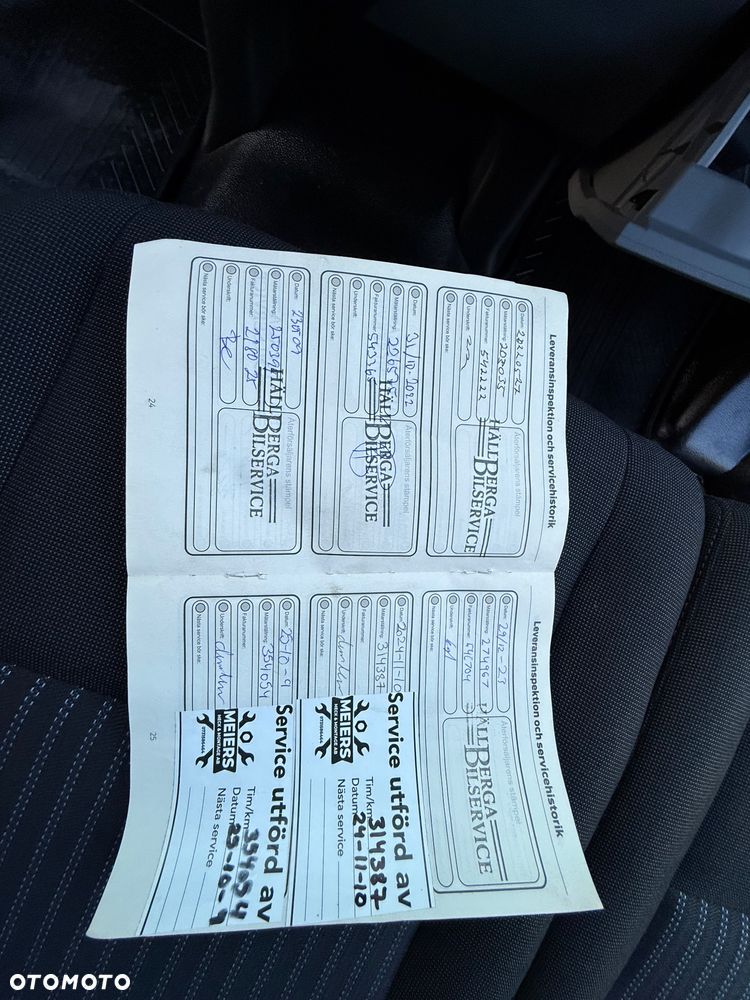 Leveransinspektion och servicehistorik
Datum: 20220527
Mätarställning: 202035
Fakturanummer: 542222
Underskrift:
Nästa service bör ske:
Återförsäljarens stämpel
HÄLLBERGA
BILSERVICE
Datum: 31/10-2022
Mätarställning:
Fakturanummer:
Underskrift:
Nästa service bör ske:
Återförsäljarens stämpel
HÄLLBERGA
BILSERVICE
Datum: 230509
Mätarställning: 25039
Fakturanummer:
Underskrift:
Nästa service bör ske:
Återförsäljarens stämpel
HÄLLBERGA
BILSERVICE
24
Leveransinspektion och servicehistorik
Datum: 29/12-23
Mätarställning: 274367
Fakturanummer:
Underskrift:
Nästa service bör ske:
Återförsäljarens stämpel
HÄLLBERGA
BILSERVICE
Datum: 2024-11-10
Mätarställning: 314387
Fakturanummer:
Underskrift:
Nästa service bör ske:
Service utförd av
MEIERS
MECK & MONTAGE AB
Tim/km 314387
Datum 24-11-10
Nästa service
Datum: 25-10-9
Mätarställning: 354054
Fakturanummer:
Underskrift:
Nästa service bör ske:
Service utförd av
MEIERS
MECK & MONTAGE AB
Tim/km 354054
Datum 25-10-9
Nästa service
25
OTOMOTO